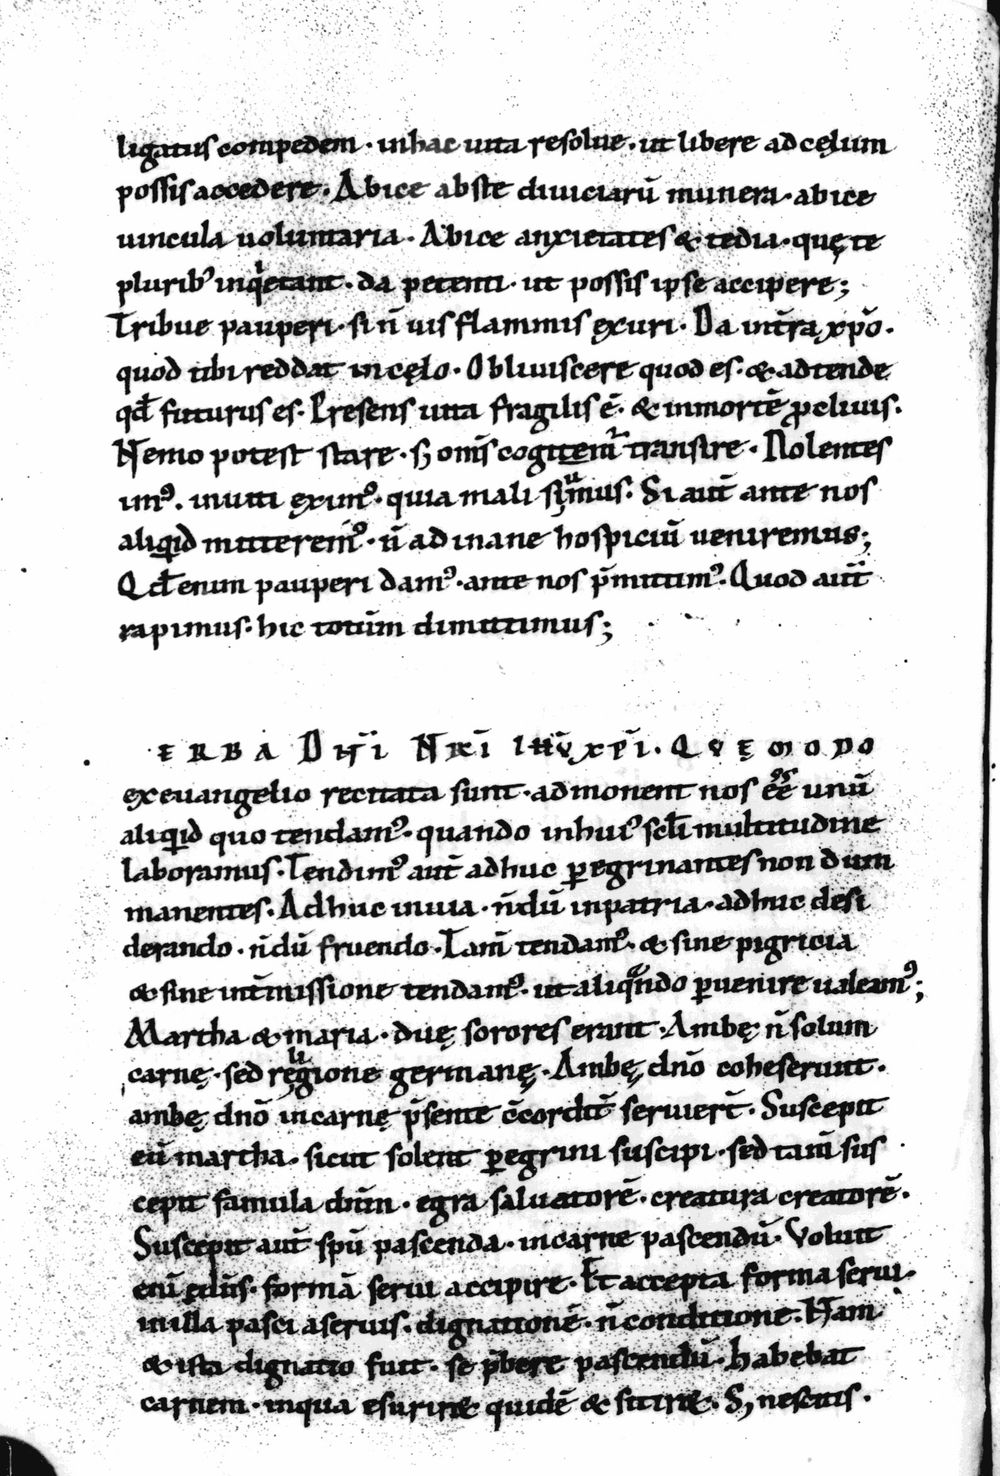 ligatus compedem · in hac uita resolue · ut libere ad cęlum
possis accedere · Abice abs te diuiciarū munera · abice
uincula uoluntaria · Abice anxietates & tedia · quę te
pluribꝰ inqͥetant · da petenti · ut possis ipse accipere;
Tribue pauperi · si n̄ uis flammis exuri · Da int̄ra xp̄o ·
quod tibi reddat in cęlo · Obliuiscere quod es · & adtende
qd̄ futurus es · Presens uita fragilis ē · & in mortē ꝓcliuis ·
Nemo potest stare · s; om̄s cogit̄em̄ transire · Nolentes
imꝰ · inuiti eximꝰ · quia mali sumus · Si aut̄ ante nos
aliquid mitteremꝰ · n̄ ad inane hospiciū ueniremus;
Qd̄ enim pauperi damꝰ · ante nos p̄mittimꝰ · Quod aut̄
rapimus · hic totūm dimittimus;
ERBA DN̄I NR̄I IHV̄ XPĪ · QVĘ MODO
ex euangelio recitata sunt · admonent nos eē unū
aliquid quo tendamꝰ · quando in huiꝰ scl̄i multitudine
laboramus · Tendimꝰ aut̄ adhuc ꝑegrinantes non dum
manentes · Adhuc in uia · n̄dū in patria · adhuc desi
derando · n̄dū fruendo · Tam̄ tendamꝰ · & sine pigricia
& sine int̄missione tendamꝰ · ut aliqͣndo ꝑuenire ualeamꝰ;
Martha & maria · duę sorores erant · Ambę n̄ solum
carnę · sed religione germanę · Ambę dn̄o coheserunt ·
ambę dn̄o in carnę p̄sente c̄cordit̄ seruier̄t · Suscepit
eū martha · sicut solent ꝑegrini suscipi · sed tam̄ sus
cepit famula dn̄m · egra saluatorē · creatura creatorē ·
Suscepit aut̄ spū pascenda · in carne pascendū · Voluit
enī dn̄s · formā serui accipire · Et accepta forma serui ·
in illa pasci a seruis · dignationē · n̄ conditione · Nam
& ista dignatio fuit · se p̄bere pascendū · Habebat
carnem · in qua esurire quidē & sitire · S; nescitis ·